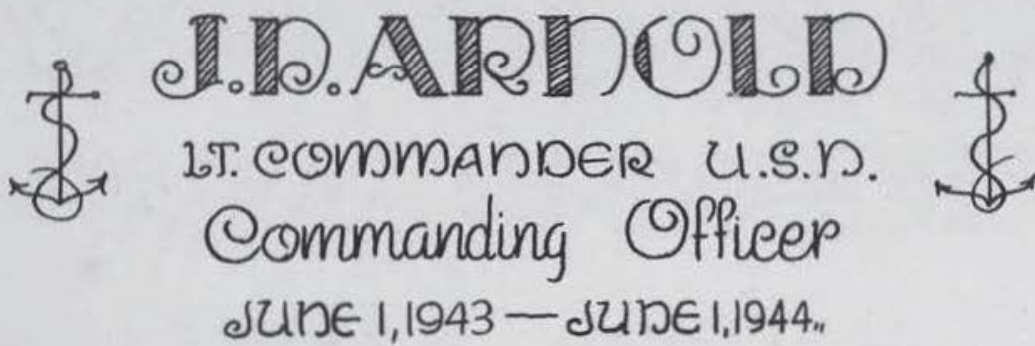 J.D. ARNOLD
LT. COMMANDER U.S.N.
Commanding Officer
JUNE 1, 1943 — JUNE 1, 1944„